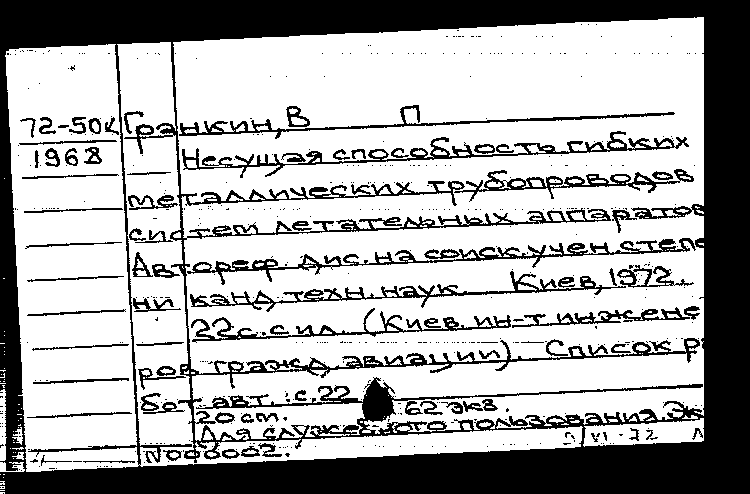 72-50к Гранкин, В П
1968 Несущая способность гибких
металлических трубопроводов
систем летательных аппаратов
Автореф. дис. на соиск. учен. степе
ни канд. техн. наук. Киев, 1972.
22с. с ил. (Киев. ин-т инжене
ров гражд. авиации). Список ра
бот авт.: с.22
20 cm. 62 экз.
Для служебного пользования. Эк
N000002.